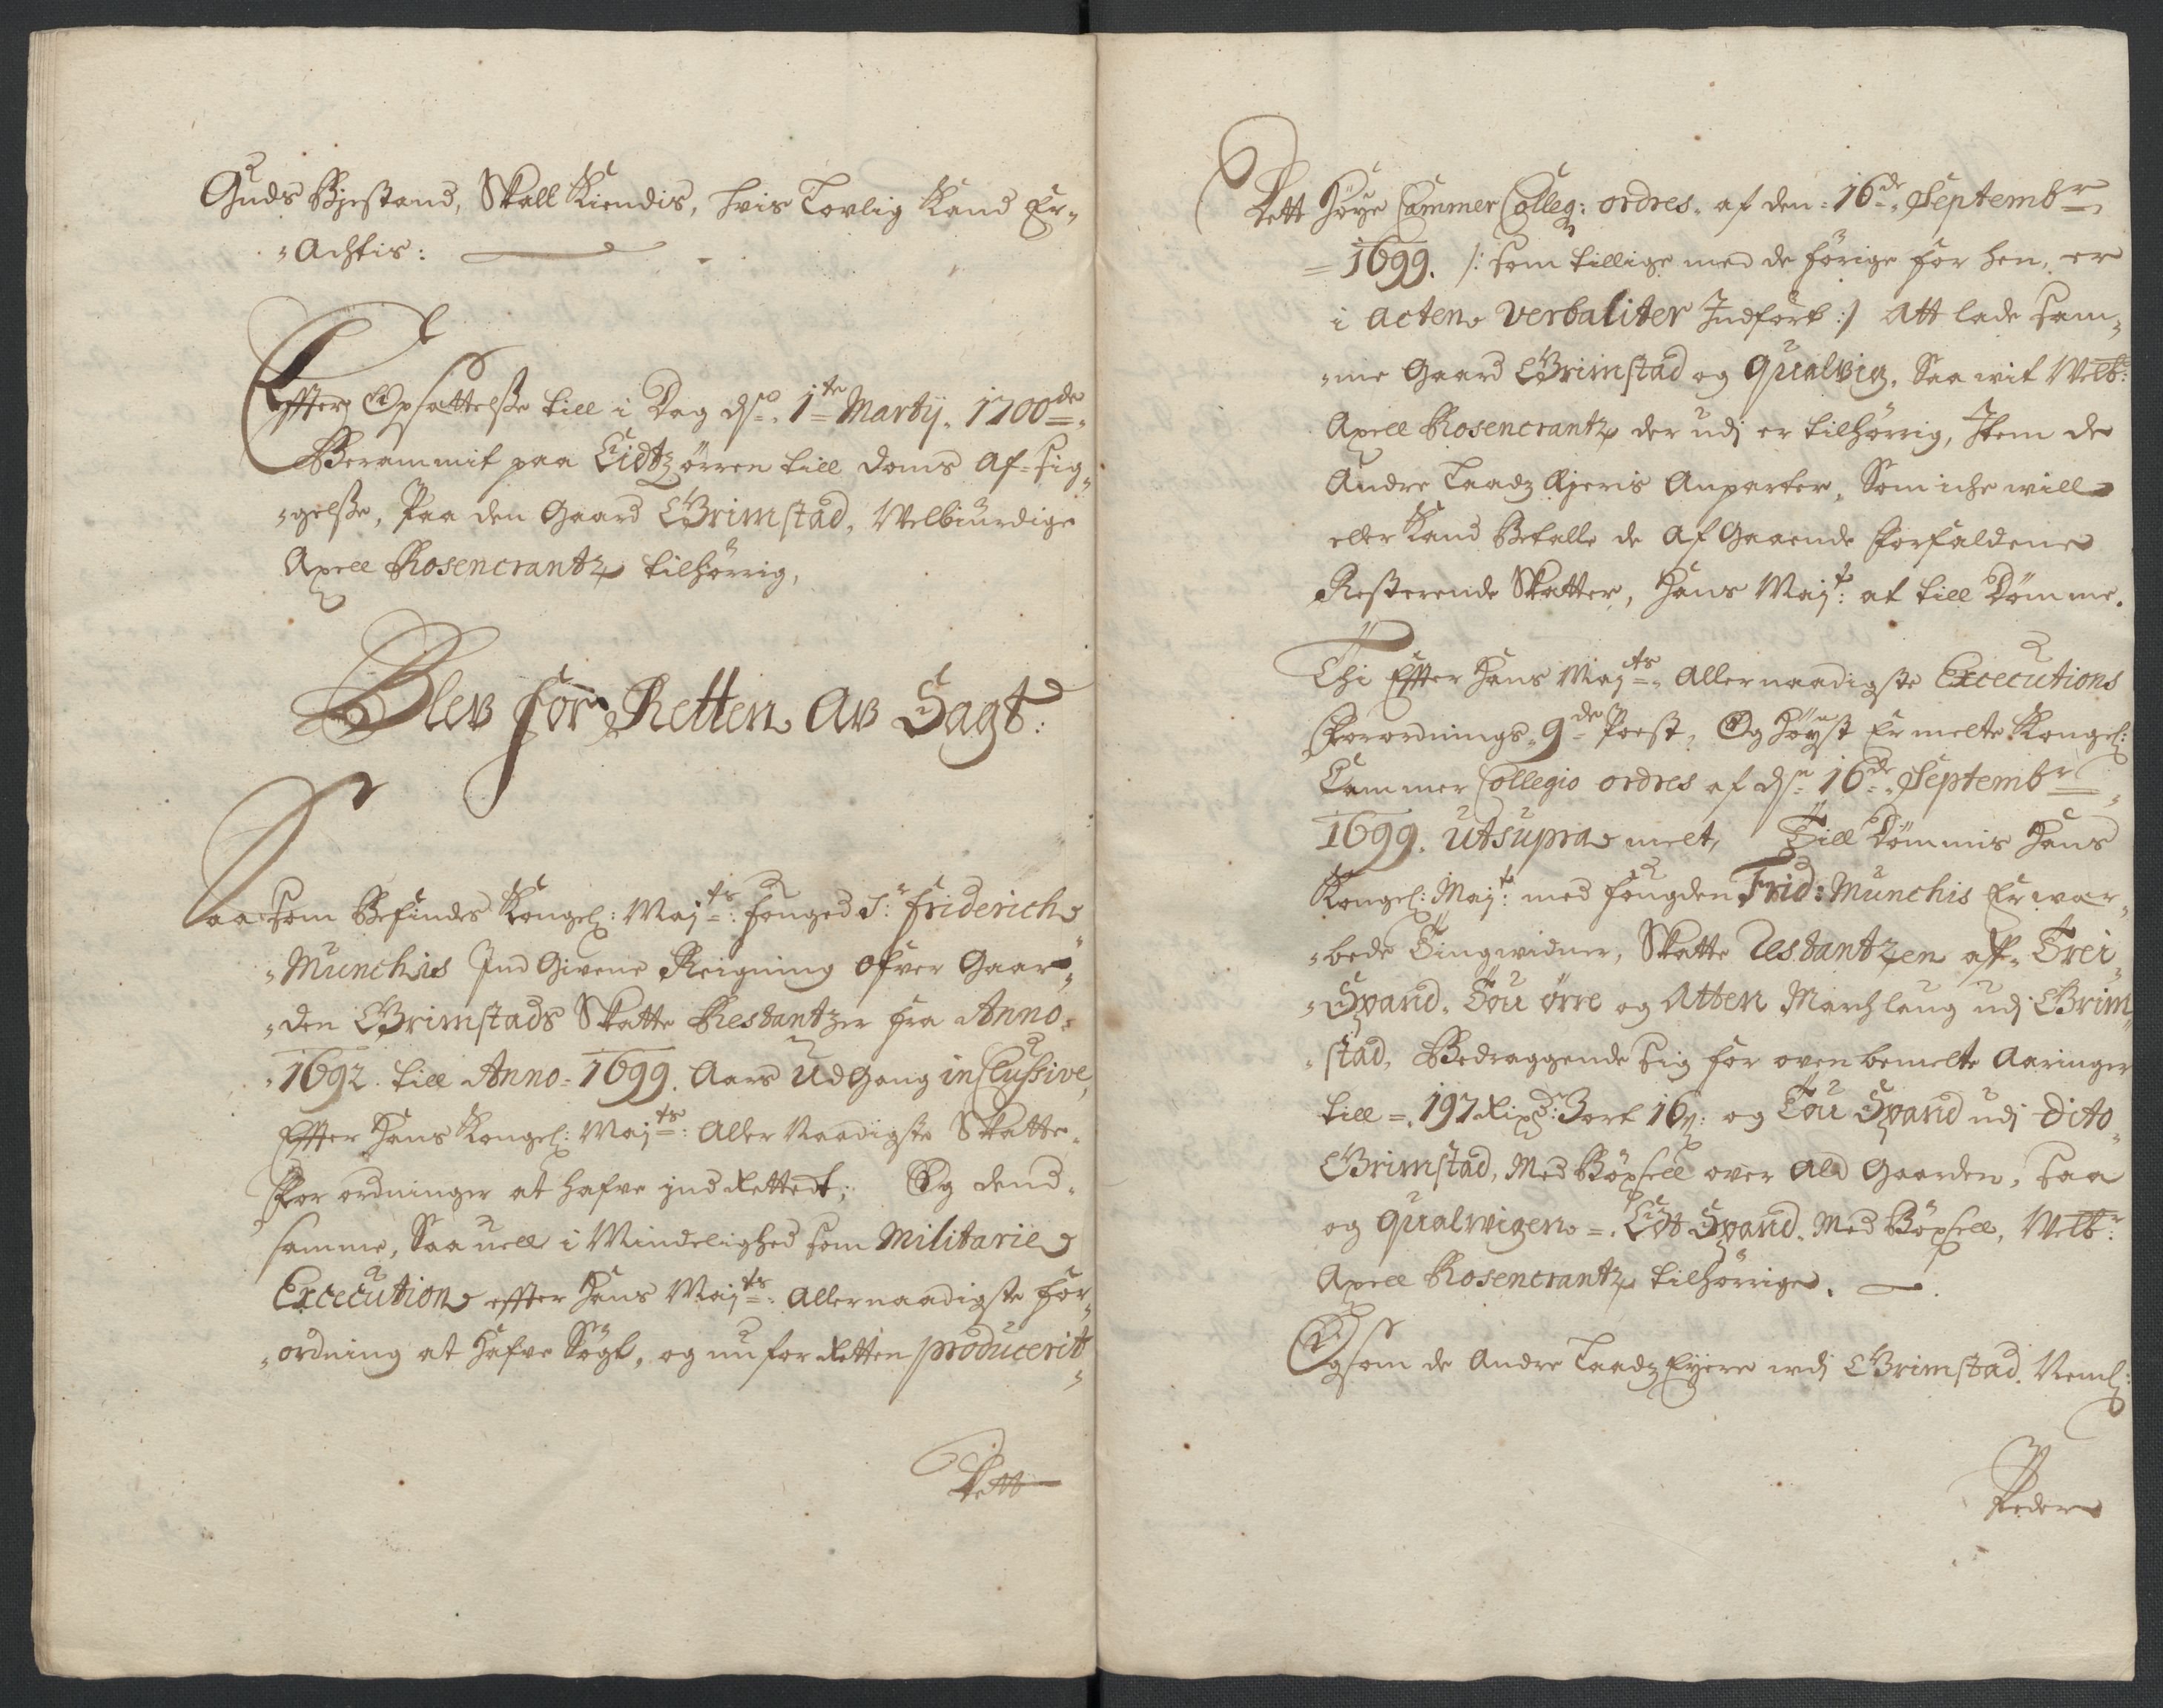 Guds Bjestand, Skall Kiendis, hvis Lovlig Kand Er-
-Achtis:
Effter Opsættelsse till i Dag dhr. 1te Martij. 1700de.
Berammit paa Eidtzørren till Doms Af-sig-
-gelsse, Paa den Gaard Grimstad, Welbiurdige
Axell Rosencrantz tilhørrig,
Blev for Retten Av Sagt:
Saasom Befindes Kongel: Majts: Fouged Sr: Friderich
Munchis Ind Givene Reigning ofver Gaar-
-den Grimstads Skatte Restantzer fra Anno-
1692. till Anno-1699. Aars Udgang inclussive,
Effter Hans Kongel: Majts: Aller Naadigste Skatte-
For ordninger at hafve jnd Rettedt; Og dend-
samme, Saa uell i Mindelighed som Militarie
Excecution effter Hans Majts: Allernaadigste For-
-ordning at Hafve Søgt, og nu for Retten producerit
Dett
Dett Høye Cammer Colleg: ordres. af den-16de. Septembr
-1699. /: som tillige med de førige for hen, er
i Acten Verbaliter Indført :/ Att lade sam-
-me Gaard Grimstad og Qualvig, Saa wit Welb:
Axell Rosencrantz der udj er tilhørrig, Item de
Andre Laadz Ejeris Anparter, Som iche will
eller Kand Betalle de Af Gaaende Forfaldene
Resterende Skatter, Hans Majt: at till Dømme.
Thi Effter Hans Majts. Allernaadigste Excecutions
Forordnings. 9de Post, Og Høyst Ermelte Kongel:
Cammer Collegio ordres af dhn 16de. Septembr
1699. utsupra melt, Till Dømmis Hans
Kongel: Majt: med Fougden Frid: Munchis Erwar-
-bede Tingwidner, Skatte Restantzen aff. Trei
Spand. Tou ørre og Atten Marchlaug udj Grim-
-stad, Bedraggende sig for oven bemelte Aaringer
till-. 197 Rixd: 3 ort 16s: og Tou Spand udj Dito
Grimstad, Med Bøxsell over Ald Gaarden, saa
og Qualwigen-. Edt Spand. Med Bøxsell, Welb:
Axell Rosencrantz tilhørrige.
Og som de Andre Laadz Eyere udj Grimstad. Neml:
Peder